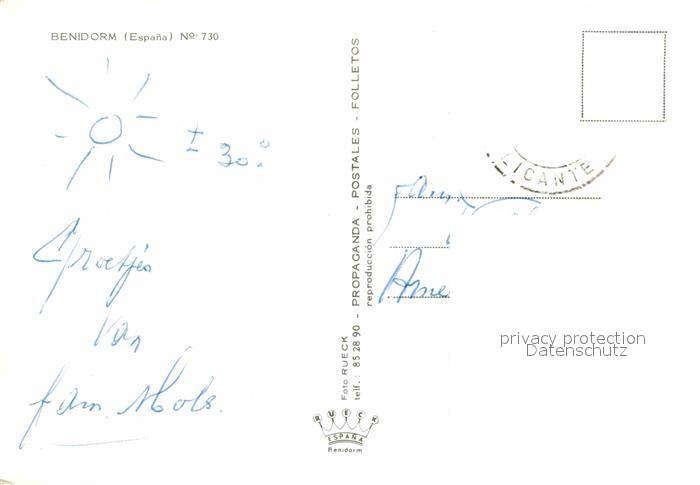 BENIDORM (España) Nº 730
± 30°
Groetjes
van
fam. Mols.
Foto RUECK - PROPAGANDA - POSTALES - FOLLETOS
telf.: 85 28 90
reproducción prohibida
RUECK
ESPAÑA
Benidorm
LICANTE
fam.
privacy protection
Datenschutz